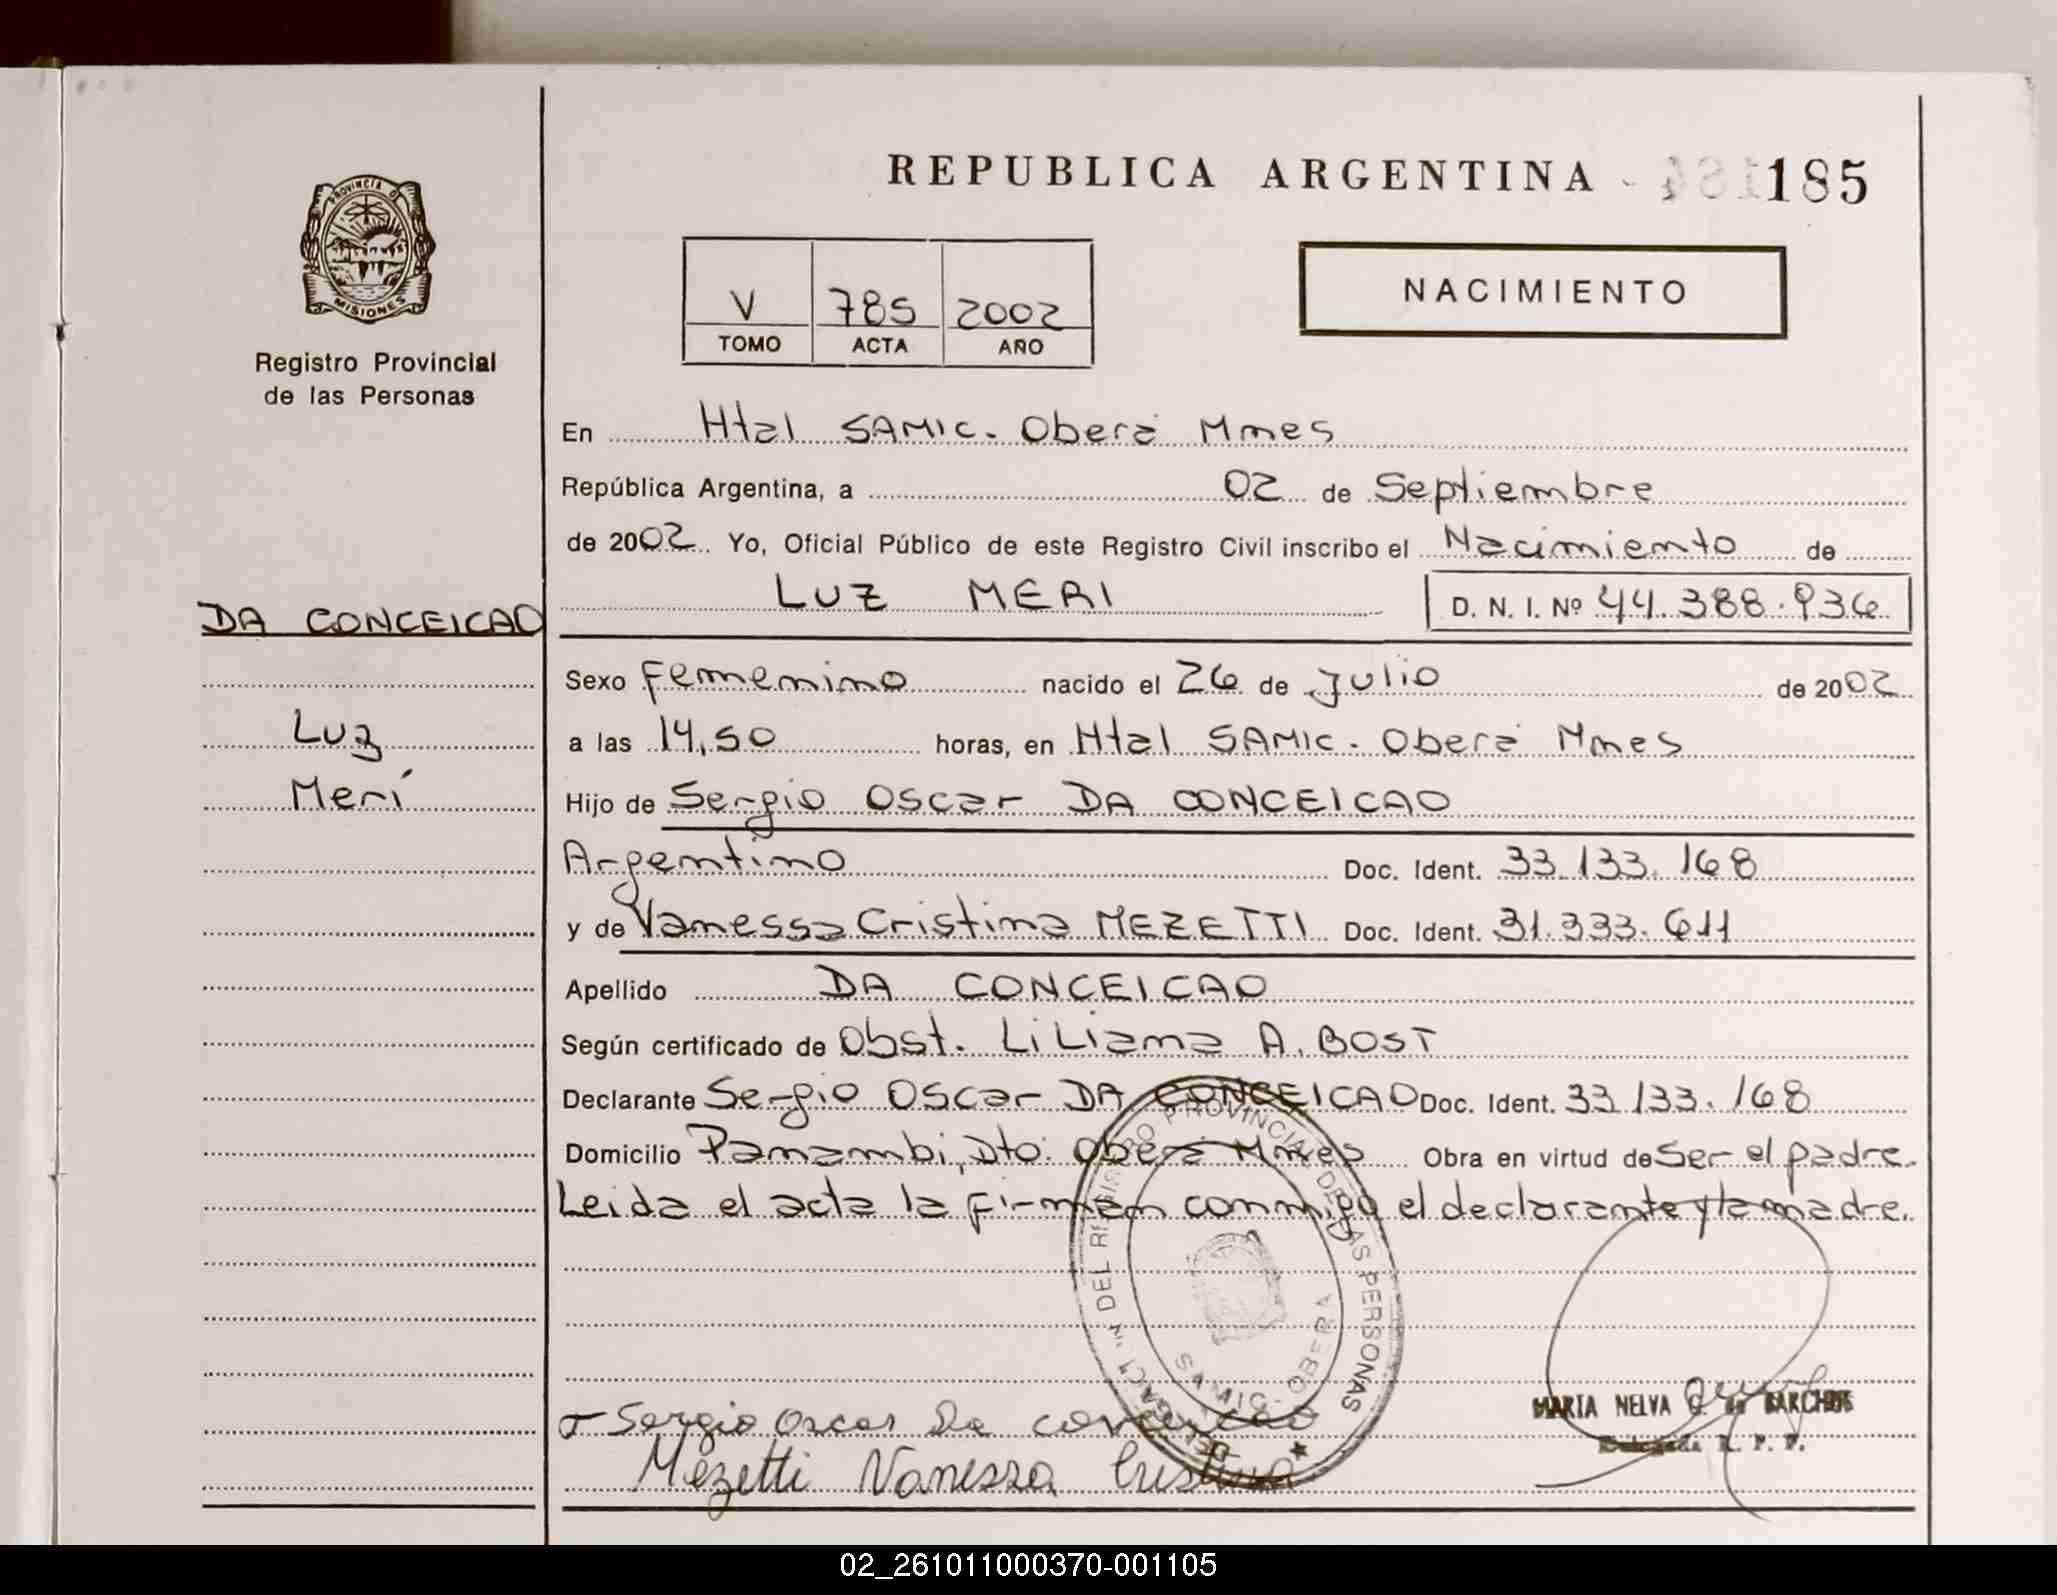 REPUBLICA ARGENTINA 185
PROVINCIA DE
MISIONES
Registro Provincial
de las Personas
V 785 2002
TOMO ACTA AÑO
NACIMIENTO
En Htal SAMIC. Oberá Mnes
República Argentina, a 02 de Septiembre
de 2002 Yo, Oficial Público de este Registro Civil inscribo el Nacimiento de
LUZ MERI D. N. I. Nº 44.388.936
DA CONCEICAO
Luz
Merí
Sexo Femenino nacido el 26 de Julio de 2002
a las 14,50 horas, en Htal SAMIC. Oberá Mnes
Hijo de Sergio Oscar DA CONCEICAO
Argentino Doc. Ident. 33.133.168
y de Vanessa Cristina MEZETTI Doc. Ident. 31.333.611
Apellido DA CONCEICAO
Según certificado de Obst. Liliana A. BOST
Declarante Sergio Oscar DA CONCEICAO Doc. Ident. 33.133.168
Domicilio Panambi, Dto: Oberá Mnes Obra en virtud de Ser el padre.
Leida el acta la firman conmigo el declarante y la madre.
DEL REGISTRO PROVINCIAL DE LAS PERSONAS
SAMIC - OBERA
Sergio Oscar Da
Mezetti Vanessa Cristina
MARIA NELVA G. de
Delegada R. P. P.
02_261011000370-001105